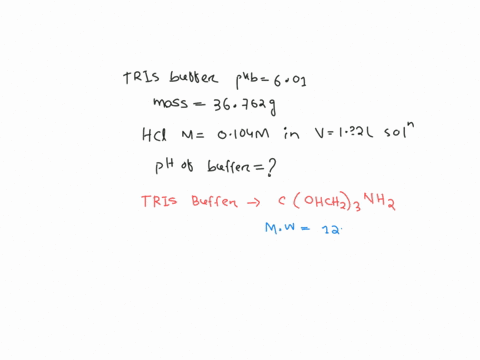 TRIs buffer pkb = 6.01
mass = 36.762g
HCl M = 0.104M in V = 1.?2L solⁿ
pH of buffer = ?
TRIS Buffer → C(OHCH₂)₃NH₂
M.W = 12.